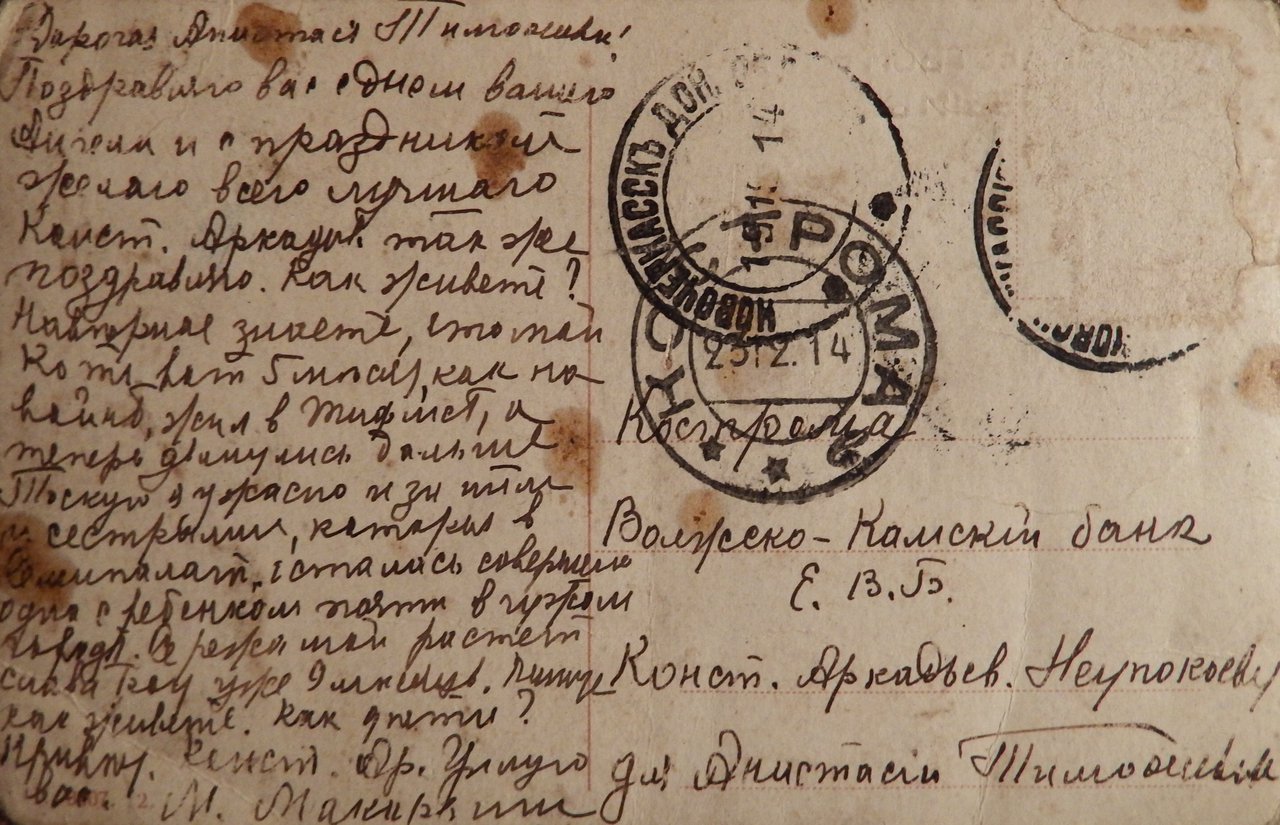 Дорогая Анистасія Тимофѣевна!
Поздравляю вас с днем вашего
Ангела и с праздником
желаю всего лучшаго
Конст. Аркадьев. так же
поздравляю. Как живете?
Навѣрное знаете, что мой
Котя вот 5 месяц, как на
войнѣ, жил в Тифлисѣ, а
теперь двинулись дальше
Тоскую я ужасно и за ним
и сестрами, которыя в
Семипалат. осталась совершено
одна с ребенком почти в чужом
городѣ. Сережа мой растет
слава Богу уже 9 месецев. Пишите
как живете. Как дѣти?
Привѣт. Конст. Ар. Цѣлую
вас. М.
НОВОЧЕРКАССКЪ ДОН. ОБЛ.
14
КОСТРОМА
25.12.14
Кострома
Волжско-Камскій банк
Е. В. Б.
Конст. Аркадьев. Неупокоеву
для Анистасіи Тимофѣевны